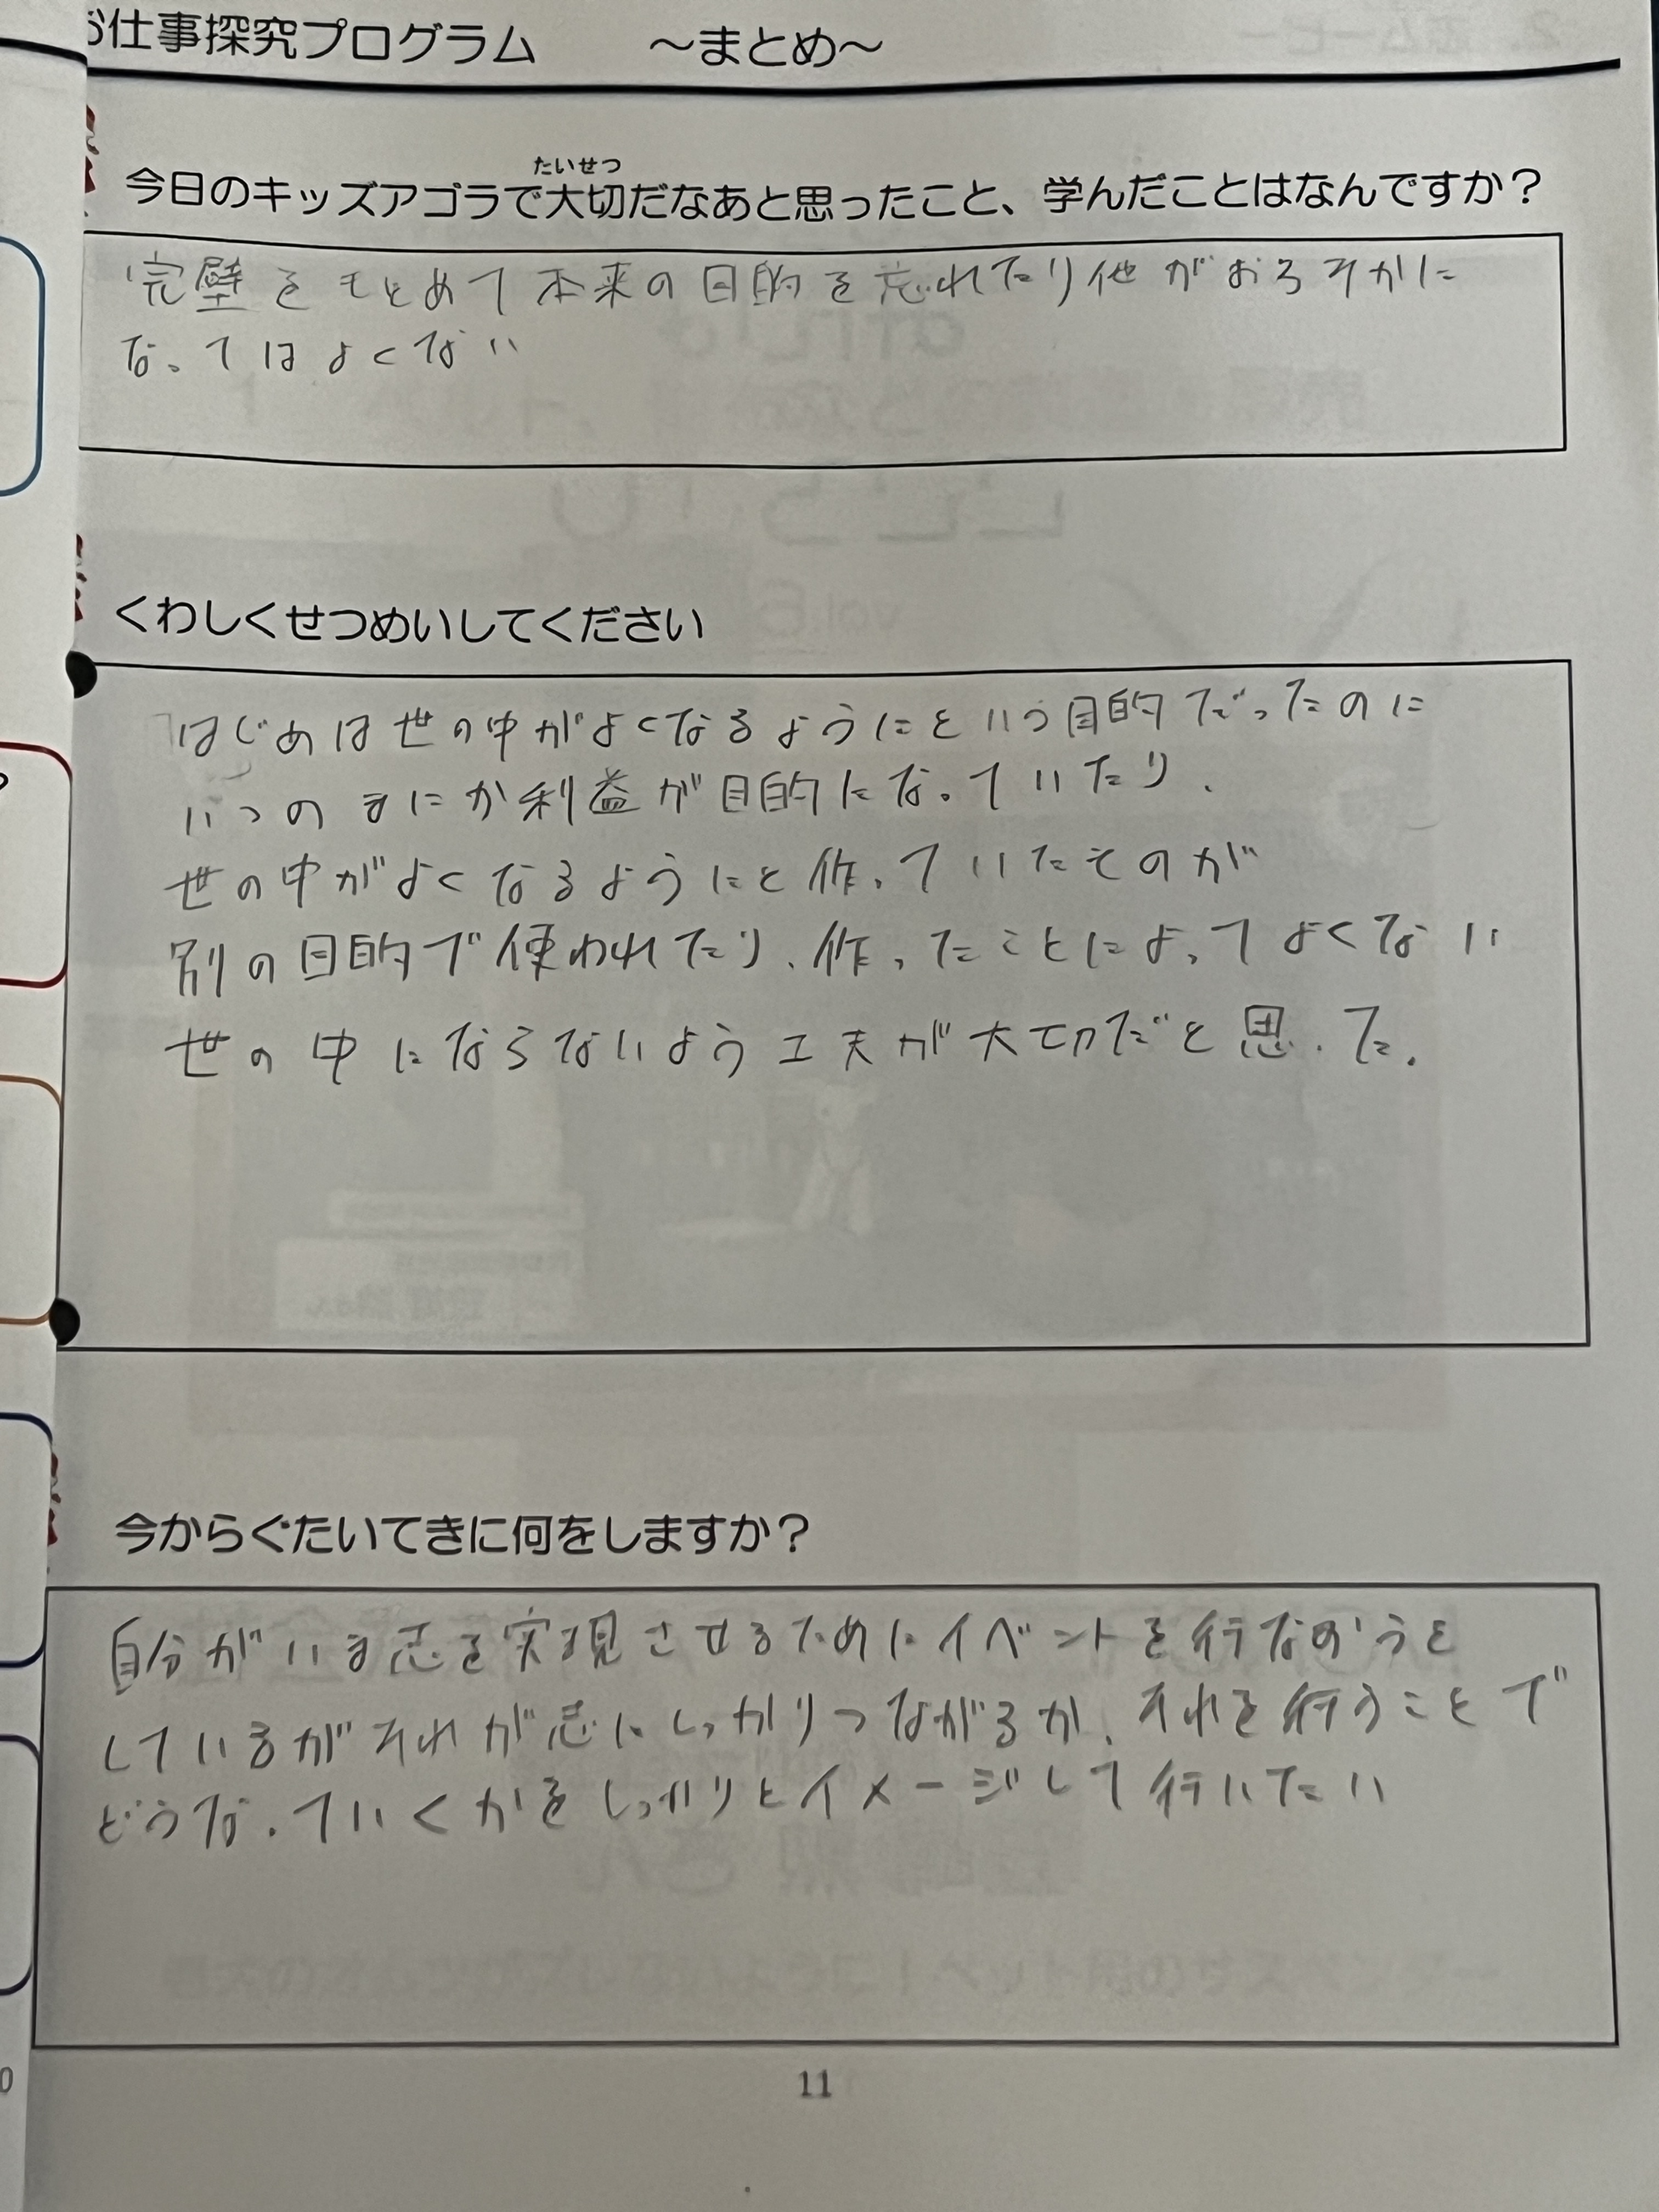 お仕事探究プログラム　〜まとめ〜
たいせつ
今日のキッズアゴラで大切だなあと思ったこと、学んだことはなんですか？
完璧をもとめて本来の目的を忘れたり他がおろそかに
なってはよくない
くわしくせつめいしてください
はじめは世の中がよくなるようにという目的だったのに
いつのまにか利益が目的になっていたり、
世の中がよくなるようにと作っていたものが
別の目的で使われたり、作ったことによってよくない
世の中にならないよう工夫が大切だと思った。
今からぐたいてきに何をしますか？
自分がいま志を実現させるためにイベントを行なおうと
しているがそれが志にしっかりつながるか、それを行うことで
どうなっていくかをしっかりとイメージして行いたい
11